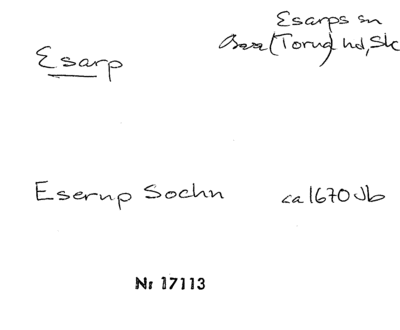 Esarps sn
Esarp
Bara (Torna) hd, Sk
Eserup Sochn ca 1670 Jb
Nr 17113